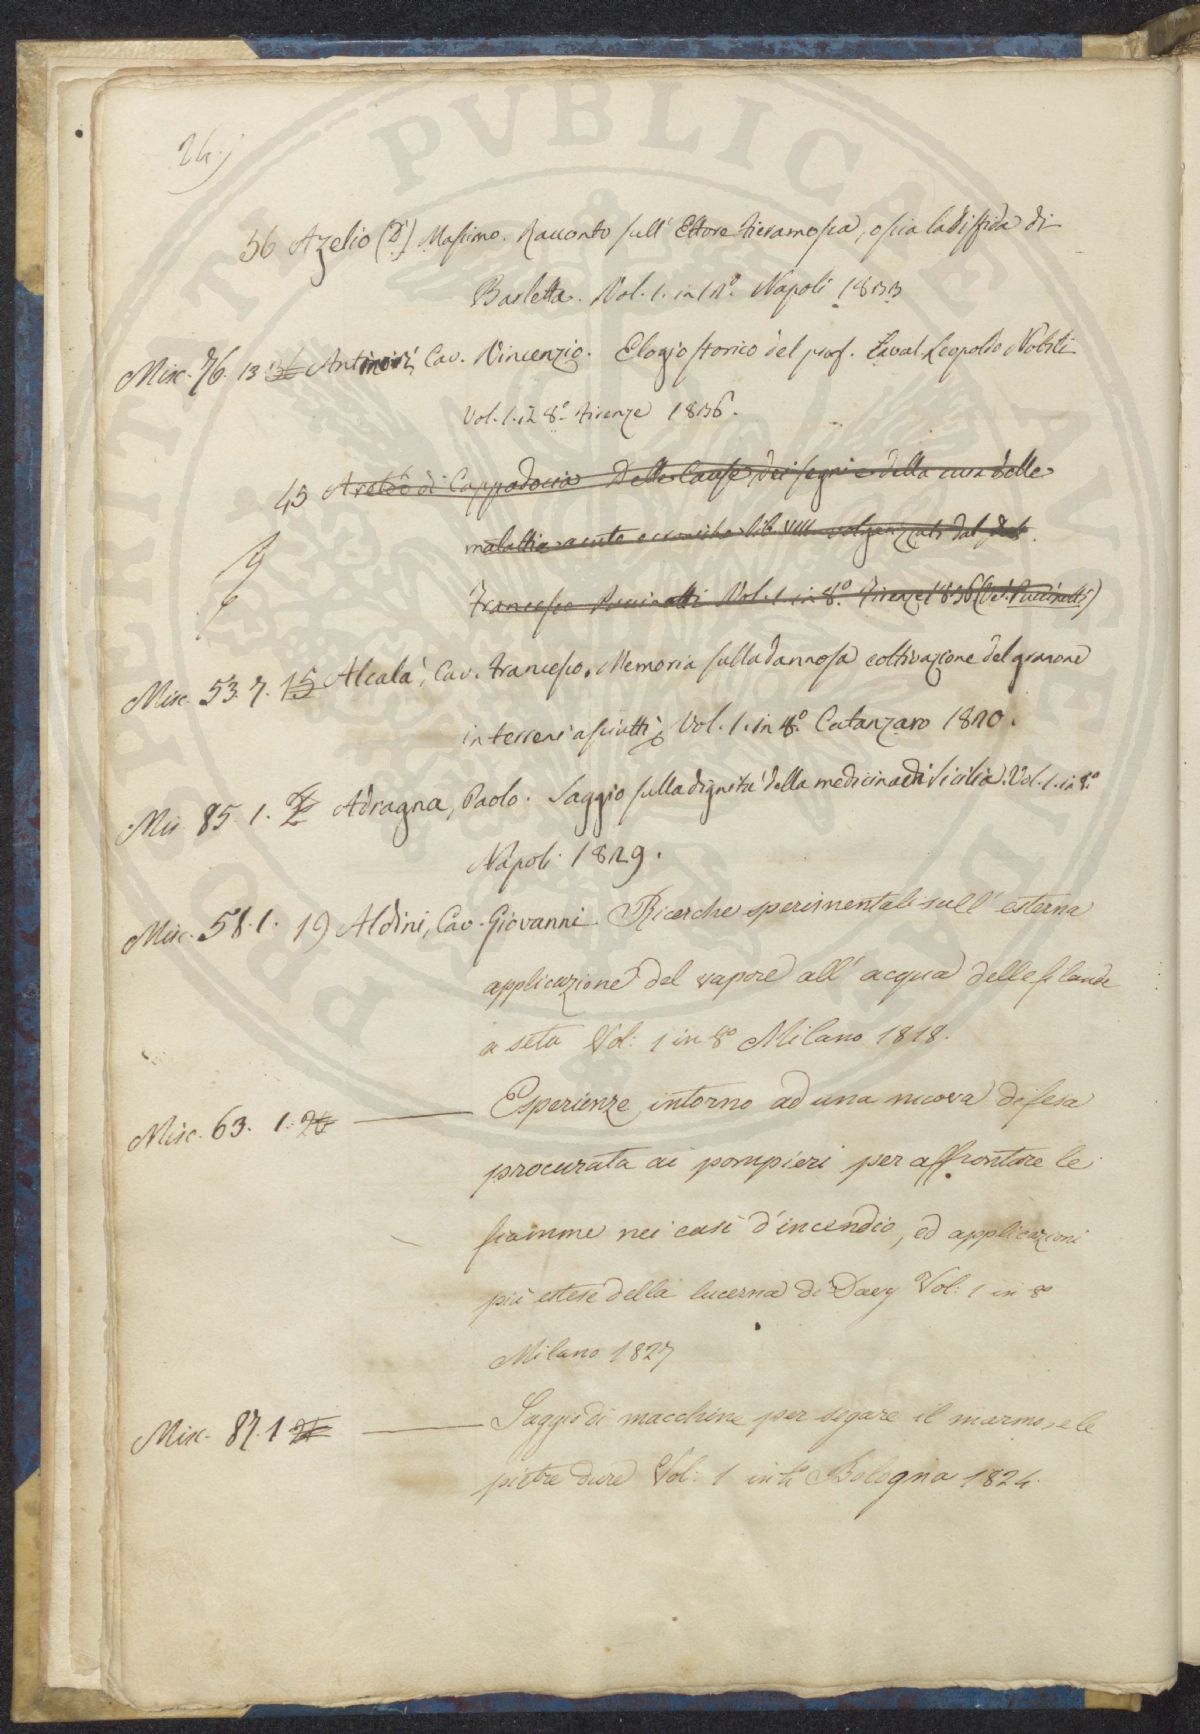 24.)
56 Azelio (D') Massimo. Racconto sull' Ettore Fieramosca, ossia la disfida di
Barletta. Vol. 1. in 12.° Napoli 1833
Misc. 76. 13 Antinori, Cav. Vincenzio. Elogio storico del prof. Caval Leopoldo Nobili
Vol. 1. in 8.° Firenze 1836.
45 Areteo di Cappadocia Delle Cause dei segni e della cura delle
malattie acute e croniche lib. VIII volgarizzate dal
Francesco Puccinotti Vol. 1 in 8.° Firenze 1836 (Ved. Puccinotti)
Misc. 53. 7. 15 Alcalà, Cav. Francesco. Memoria sulla dannosa coltivazione del granone
in terreni asciutti; Vol. 1. in 8.° Catanzaro 1820.
Mis. 85. 1. Adragna, Paolo. Saggio sulla dignità della medicina di Sicilia. Vol. 1. in 8.°
Napoli 1829.
Misc. 58. 1. 19 Aldini, Cav. Giovanni Ricerche sperimentali sull' esterna
applicazione del vapore all' acqua delle filande
a seta Vol: 1 in 8° Milano 1818.
Misc. 63. 1. 20 — Esperienze intorno ad una nuova difesa
procurata ai pompieri per affrontare le
fiamme nei casi d'incendio, ed applicazioni
più estese della lucerna di Davy Vol: 1 in 8°
Milano 1827
Misc. 87. 1 — Saggio di macchine per segare il marmo, e le
pietre dure Vol: 1 in 4° Bologna 1824.
PUBLICAE UTILITATI